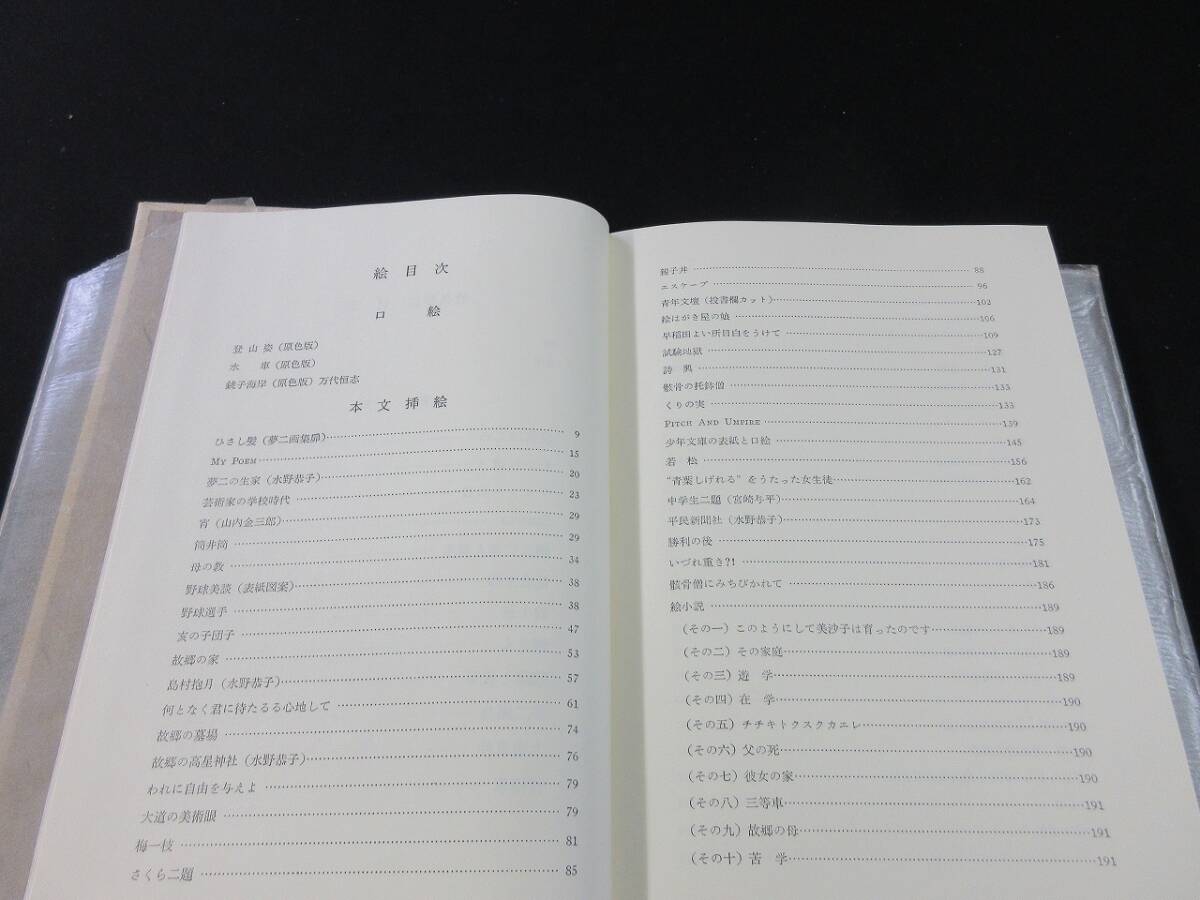 絵目次
口絵
登山姿（原色版）
水車（原色版）
銚子海岸（原色版）万代恒志
本文挿絵
ひさし髪（夢二画集扉）…………9
My Poem…………15
夢二の生家（水野恭子）…………20
芸術家の学校時代…………23
宵（山内金三郎）…………29
筒井筒…………29
母の教…………34
野球美談（表紙図案）…………38
野球選手…………38
亥の子団子…………47
故郷の家…………53
島村抱月（水野恭子）…………57
何となく君に待たるる心地して…………61
故郷の墓場…………74
故郷の高星神社（水野恭子）…………76
われに自由を与えよ…………79
大道の美術眼…………79
梅一枝…………81
さくら二題…………85
親子丼…………88
エスケープ…………96
青年文壇（投書欄カット）…………102
絵はがき屋の娘…………106
早稲田よい所目白をうけて…………109
試験地獄…………127
詩興…………131
骸骨の托鉢僧…………133
くりの実…………133
Pitch And Umpire…………139
少年文庫の表紙と口絵…………145
若松…………156
“青葉しげれる”をうたった女生徒…………162
中学生二題（宮崎与平）…………164
平民新聞社（水野恭子）…………173
勝利の後…………175
いづれ重き?!…………181
骸骨僧にみちびかれて…………186
絵小説…………189
（その一）このようにして美沙子は育ったのです…………189
（その二）その家庭…………189
（その三）遊学…………189
（その四）在学…………190
（その五）チチキトクスクカエレ…………190
（その六）父の死…………190
（その七）彼女の家…………190
（その八）三等車…………191
（その九）故郷の母…………191
（その十）苦学…………191